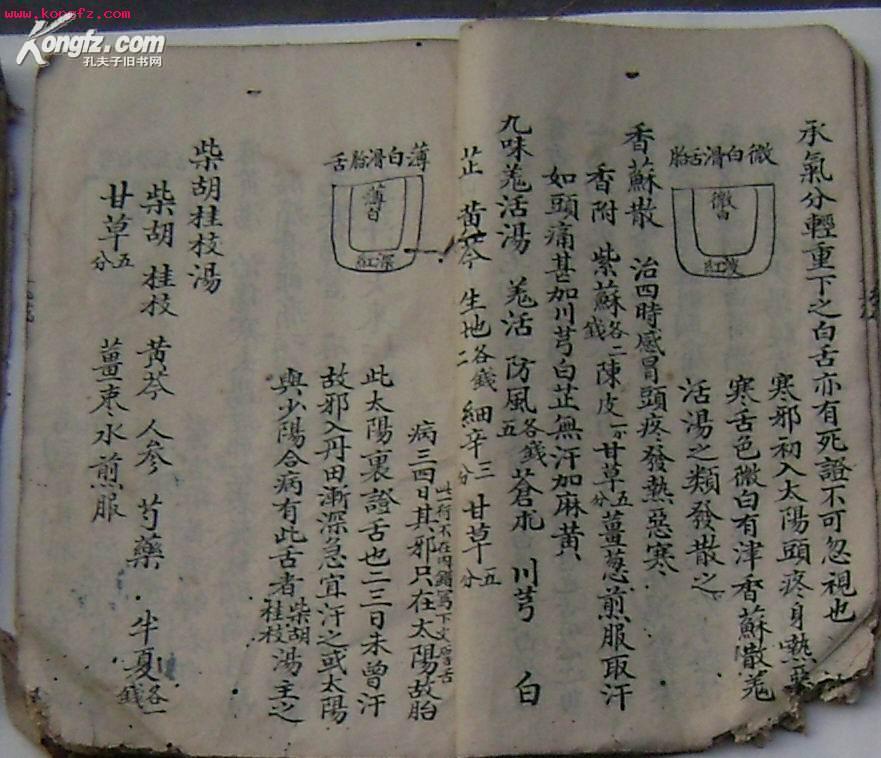 www.kongfz.com
Kongfz.com
孔夫子旧书网
承氣分輕重下之白舌亦有死證不可忽視也
微白滑舌胎
微白
紅淡
寒邪初入太陽頭疼身熱惡
寒舌色微白有津香蘇散羗
活湯之類發散之
香蘇散 治四時感冒頭疼發熱惡寒
香附 紫蘇各二錢 陳皮一分 甘草五分 薑葱煎服取汗
如頭痛甚加川芎白芷無汗加麻黃
九味羗活湯 羗活 防風各五錢 蒼朮 川芎 白
芷 黃芩 生地各二錢 細辛三分 甘草五分
薄白滑胎舌
薄白
紅深
病三四日其邪只在太陽故胎
此行不在內錯寫下文
此太陽裏證舌也二三日未曾汗
故邪入丹田漸深急宜汗之或太陽
與少陽合病有此舌者柴胡桂枝湯主之
柴胡桂枝湯
柴胡 桂枝 黃芩 人參 芍藥 半夏各一錢
甘草五分 薑枣水煎服